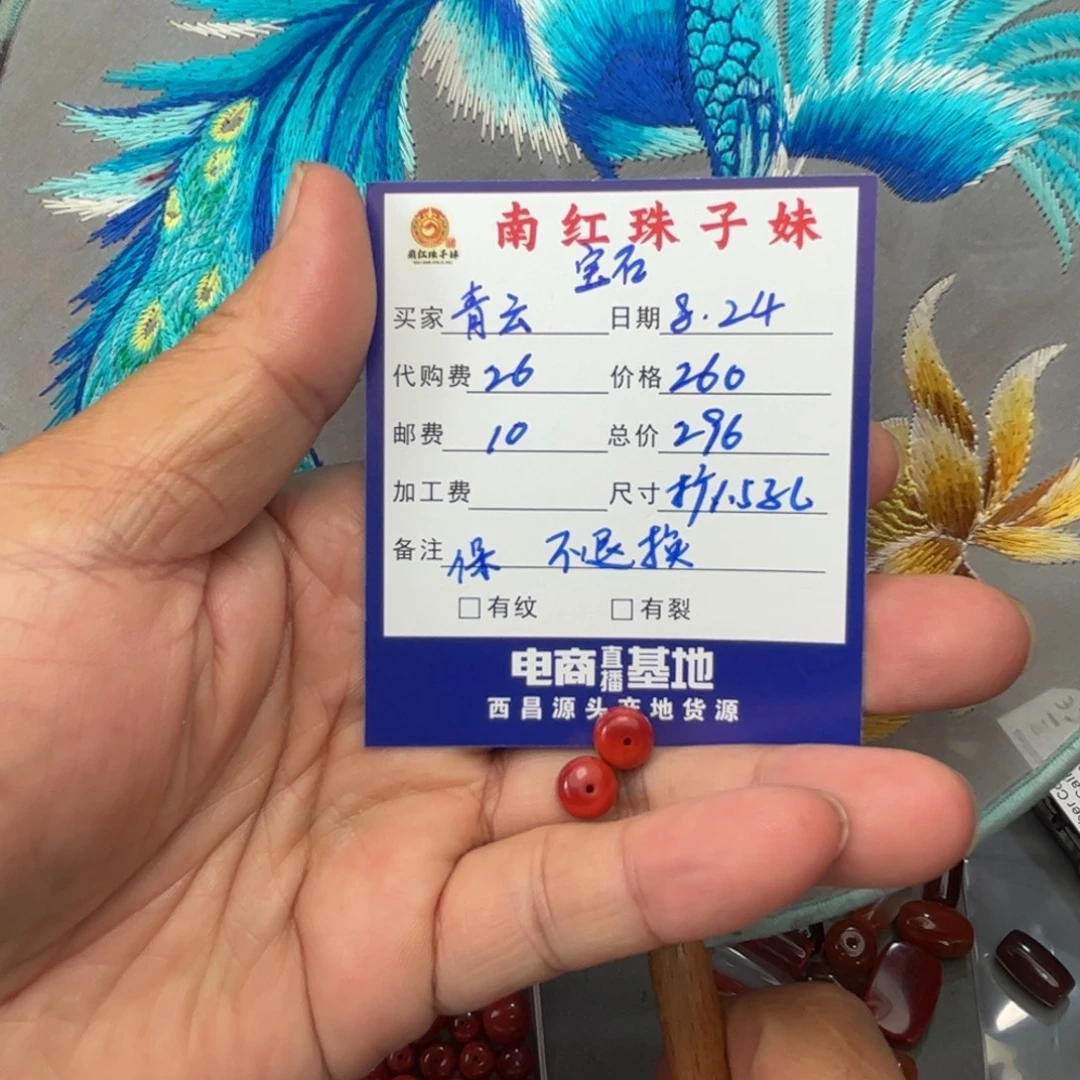 南红珠子妹
南红珠子妹
宝石
买家 青云 日期 8.24
代购费 26 价格 260
邮费 10 总价 296
加工费 尺寸 扩1.5孔
备注 保 不退换
有纹 有裂
电商直播基地
西昌源头产地货源